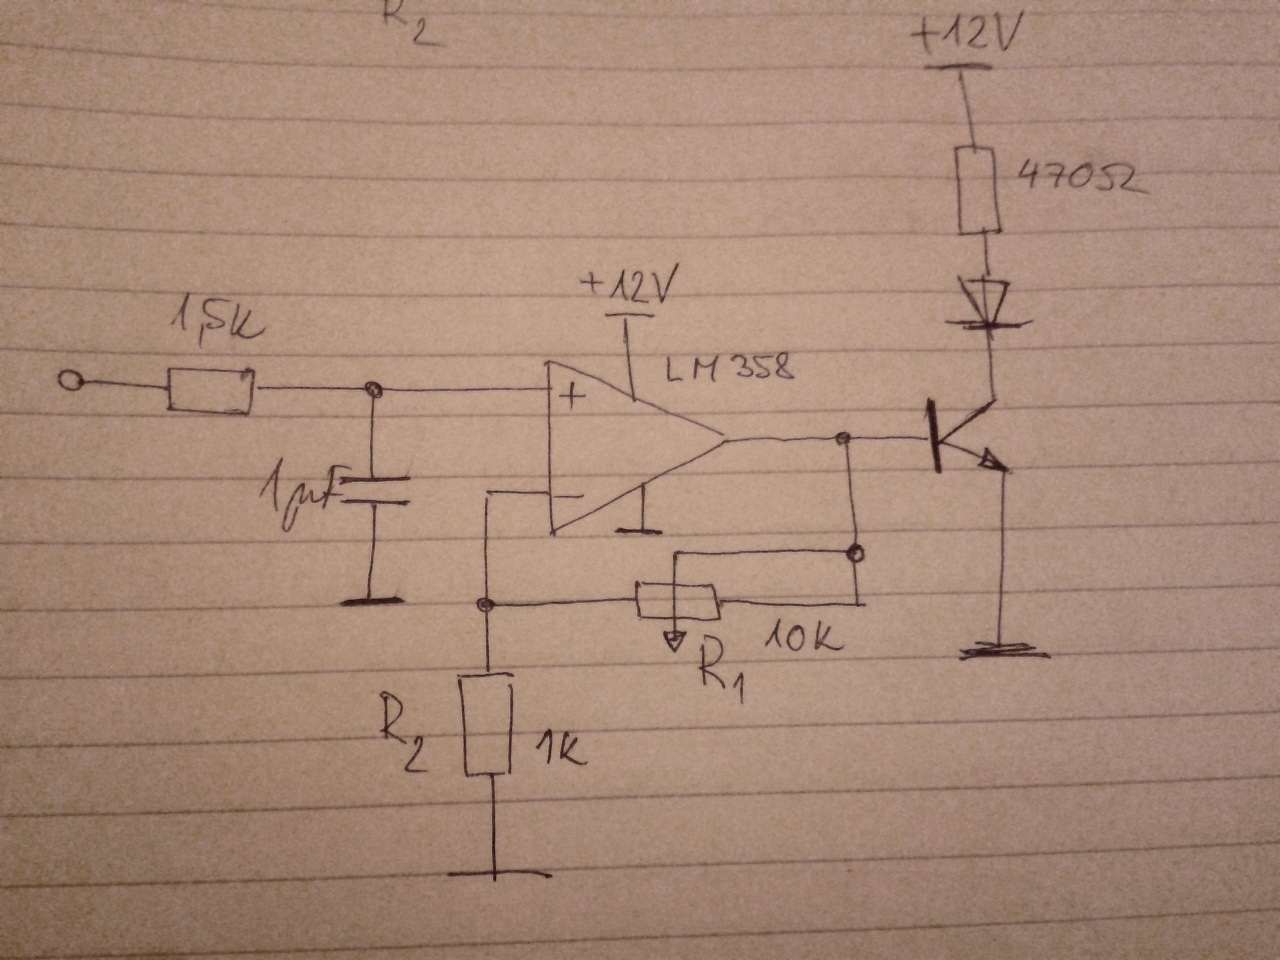 R2
+12V
470Ω
+12V
1,5K
LM358
+
1μF
-
10K
R1
R2
1K